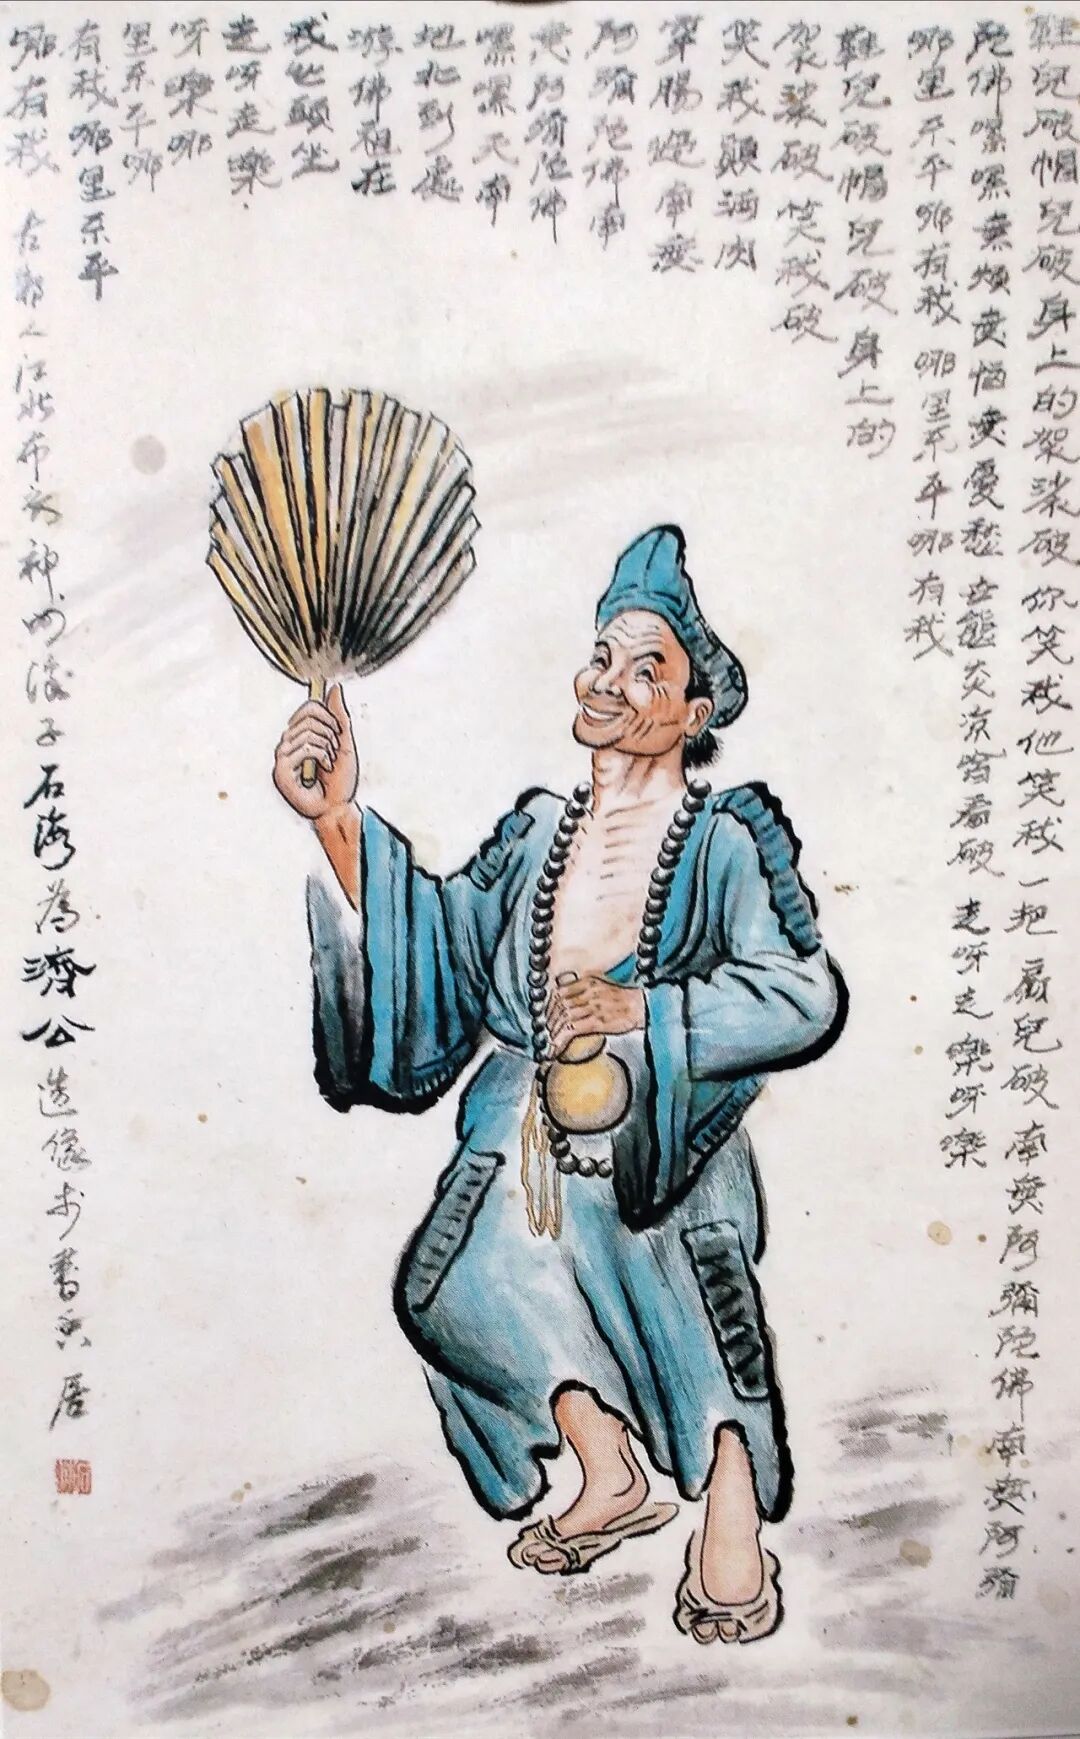 鞋兒破帽兒破身上的袈裟破你笑我他笑我一把扇兒破南無阿彌陀佛南無阿彌
陀佛嘿嘿無煩無惱無憂愁世態炎涼皆看破走呀走樂呀樂
哪里不平哪有我哪里不平哪有我
鞋兒破帽兒破身上的
袈裟破笑我破
笑我顛酒肉
穿腸過南無
阿彌陀佛南
無阿彌陀佛
嘿嘿天南
地北到處
游佛祖在
我心頭坐
走呀走樂
呀樂哪
里不平哪
有我哪里不平
哪有我
人江北布衣神州子石海為濟公造像於書香居